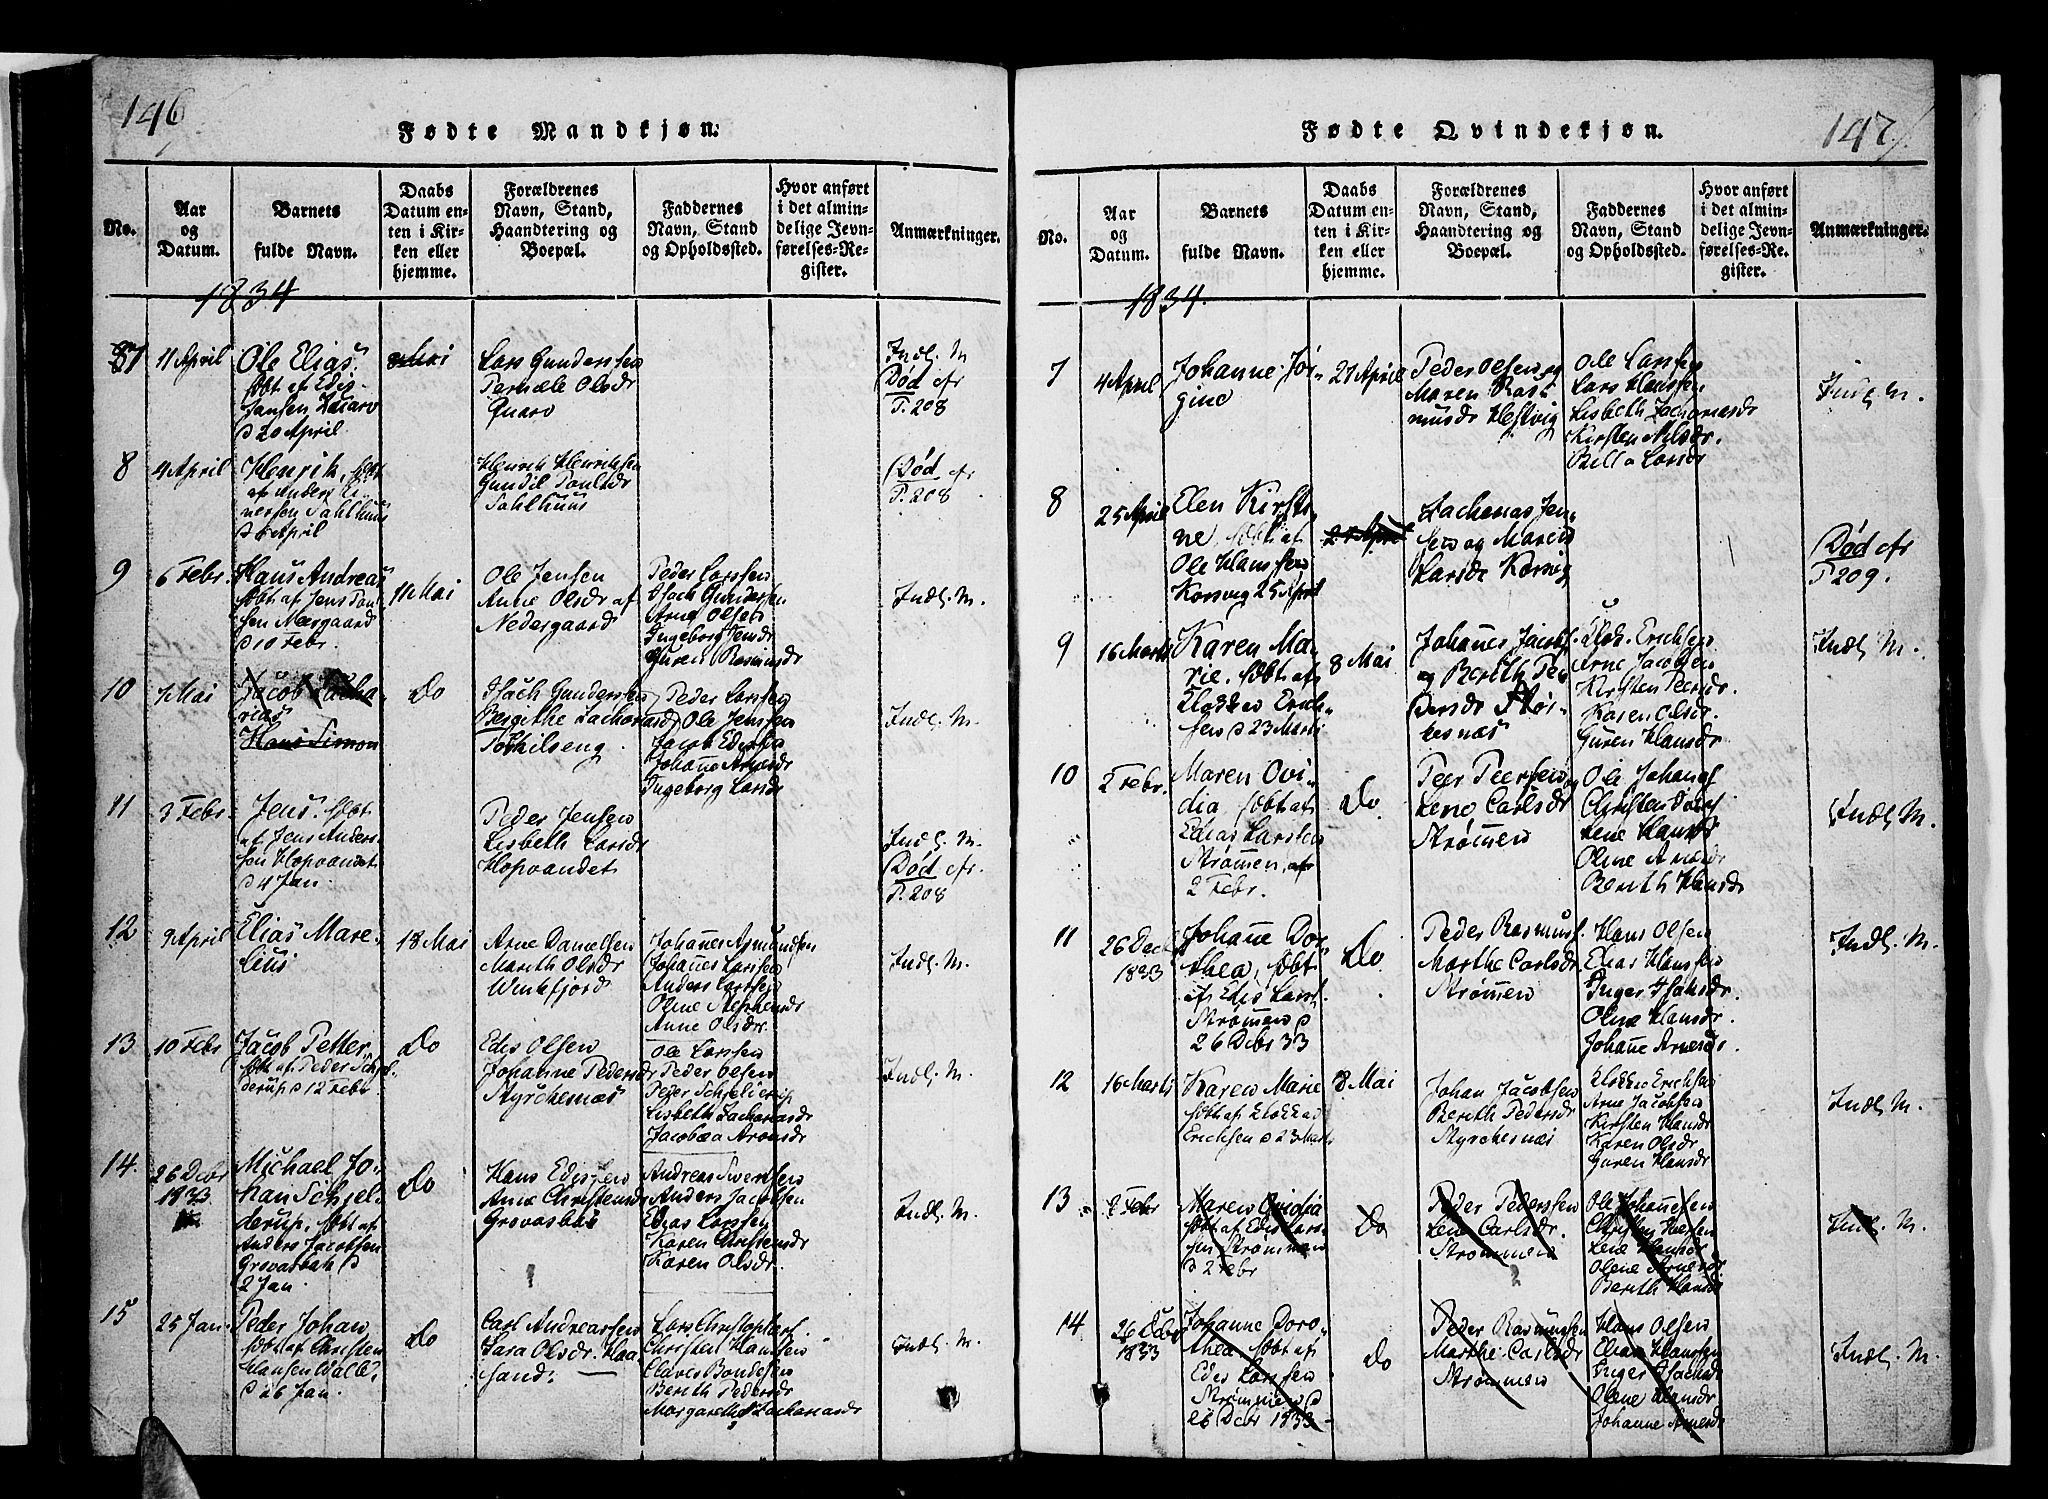 146
Fødte Mandkjøn.
No.
Aar
og
Datum.
Barnets
fulde Navn.
Daabs
Datum en-
ten i Kir-
ken eller
hjemme.
Forældrenes
Navn, Stand,
Haandtering og
Boepæl.
Faddernes
Navn, Stand
og Opholdssted.
Hvor anført
i det almin-
delige Jevn-
førelses-Re-
gister.
Anmærkninger.
1834
7
11 April
Ole Elias,
døbt af Edis
Jansen
d 20 April
Mai
Lars Gundersen
Olsdr
Indl. M
Død cfr
P. 208
8
4 April
Henrik, døbt
af Anders
Sahlhuus
April
Henrik Henriksen
Gunil Poulsdr
Sahlhuus
Død cfr
P. 208
9
6 Febr.
Hans Andreas
døbt af Jens Poul-
sen Neergaard
d 10 Febr.
11 Mai
Ole Jensen
Anne Olsdr af
Nedergaard
Peder Larssen
Isach Gundersen
Arne Olsen
Ingeborg Jensdr
Guren Rasmusdr
Indl. M.
10
7 Mai
Jacob Zacha-
rias
Hans Simon
Do
Isach Gundersen
Bergithe Zachariasdr
Peder Larssen
Ole Jenssen
Jacob Edissen
Johanne Arnesdr
Ingeborg Larsdr
Indl. M.
11
3 Febr.
Jens, døbt
af Jens Anders-
sen Hopvandet
d 4 Jan.
Peder Jensen
Lisbeth Larsdr
Hopvandet
Indl. M.
Død cfr.
P. 208
12
9 April
Elias Mare-
lius
18 Mai
Arne Danielsen
Marith Olsdr
Winkfjord
Johannes Asmundsen
Johannes Larssen
Anders Larssen
Olene Stephensdr
Anne Olsdr.
Indl. M.
13
10 Febr
Jacob Petter,
døbt af Peder Schjel-
derup d 12 Febr.
Do
Edis Olsen
Johanne Pedersdr
Styrchesnæs
Ole Larssen
Peder Olsen
Peder Schjelderup
Lisbeth Zachariasdr
Jacobæa Aronsdr
Indl. M.
14.
26 Dcbr
1833
Michael Jo-
han Schjel-
derup, døbt af
Anders Jacobsen
Grovasbak d
2 Jan.
Do
Hans Edissen
Anne Christensdr
Grovasbak
Andreas Sivertsen
Anders Jacobsen
Edias Larssen
Karen Christensdr
Karen Olsdr.
Indl. M.
15
25 Jan.
Peder Johan
døbt af Christen
Hansen Valle
d 26 Jan.
Do
Carl Andreassen
Sara Olsdr. Haa-
sand.
Lars Christophers.
Christen Hanssen
Claves Bondesen
Berith Pedersdr
Margarethe Zachariasdr
Indl. M.
147
Fødte Qvindekjøn.
No.
Aar
og
Datum.
Barnets
fulde Navn.
Daabs
Datum en-
ten i Kir-
ken eller
hjemme.
Forældrenes
Navn, Stand,
Haandtering og
Boepæl.
Faddernes
Navn, Stand
og Opholdssted.
Hvor anført
i det almin-
delige Jevn-
førelses-Re-
gister.
Anmærkninger.
1834.
7
4 April
Johanne Jør-
gine
27 April
Peder Olsen og
Maren Ras-
musdr Hestvig
Ole Larssen
Lars Hanssen
Lisbeth Zachariasdr
Kirsten Nilsdr.
Larsdr
Indl. M.
8
25 April
Elen Kirsti-
ne, døbt af
Ole Hanssen
Korsvig 25 April
27 April
Zacharias Jen-
sen og Maren
Larsdr Korsvig
Død cfr
P 209.
9
16 Marts
Karen Ma-
rie, døbt af
Klokker Erich-
sen d 23 Marts
8 Mai
Johannes Jacobs.
og Berith Pe-
dersdr Stør-
kesnæs
Klok. Erichsen
Arne Jacobsen
Kirsten Peersdr.
Karen Olsdr.
Guren Hansdr
Indl. M.
10
2 Febr.
Maren Ovi-
dia, døbt af
Edias Larssen
Strømmen, af
2 Febr.
Do.
Peer Peersen og
Lene Carlsdr
Strømmen
Ole Johans.
Christen
Lene Hansdr
Olene Arnesdr
Berith Hansdr
Indl. M.
11
26 Dec
1833
Johanne Dor-
thea, døbt
af Edis Larss.
Strømmen d
26 Dcbr 33
Do
Peder Rasmuss.
Marthe Carlsdr.
Strømmen
Hans Olsen
Elias Hanssen
Inger Isaksdr.
Olene Hansdr.
Johanne Arnesdr.
Indl. M.
12
16 Marts
Karen Marie
døbt af Klokker
Erichsen d 23 Marts
8 Mai
Johan Jacobsen
Berith Pedersdr
Styrchesnæs
Klokker Erichsen
Arne Jacobsen
Kirsten Hansdr
Karen Olsdr
Guren Hansdr
Indl. M.
13
2 Febr
Maren Ovidia
døbt af Edis Lars-
sen Strømmen
d 2 Febr
Do
Peder Pederssen
Lene Carlsdr.
Strømmen
Ole Johannesen
Christen
Lene Hansdr
Olene Arnesdr
Berith Hansdr
Indl. M.
14
26 Dcbr
1833
Johanne Doro-
thea, døbt af
Edis Larssen
Strømmen d
26 Dcbr 1833
Do
Peder Rasmussen
Marthe Carlsdr
Strømmen
Hans Olsen
Elias Hanssen
Inger Isachsdr
Olene Hansdr
Johanne Arnesdr
Indl. M.